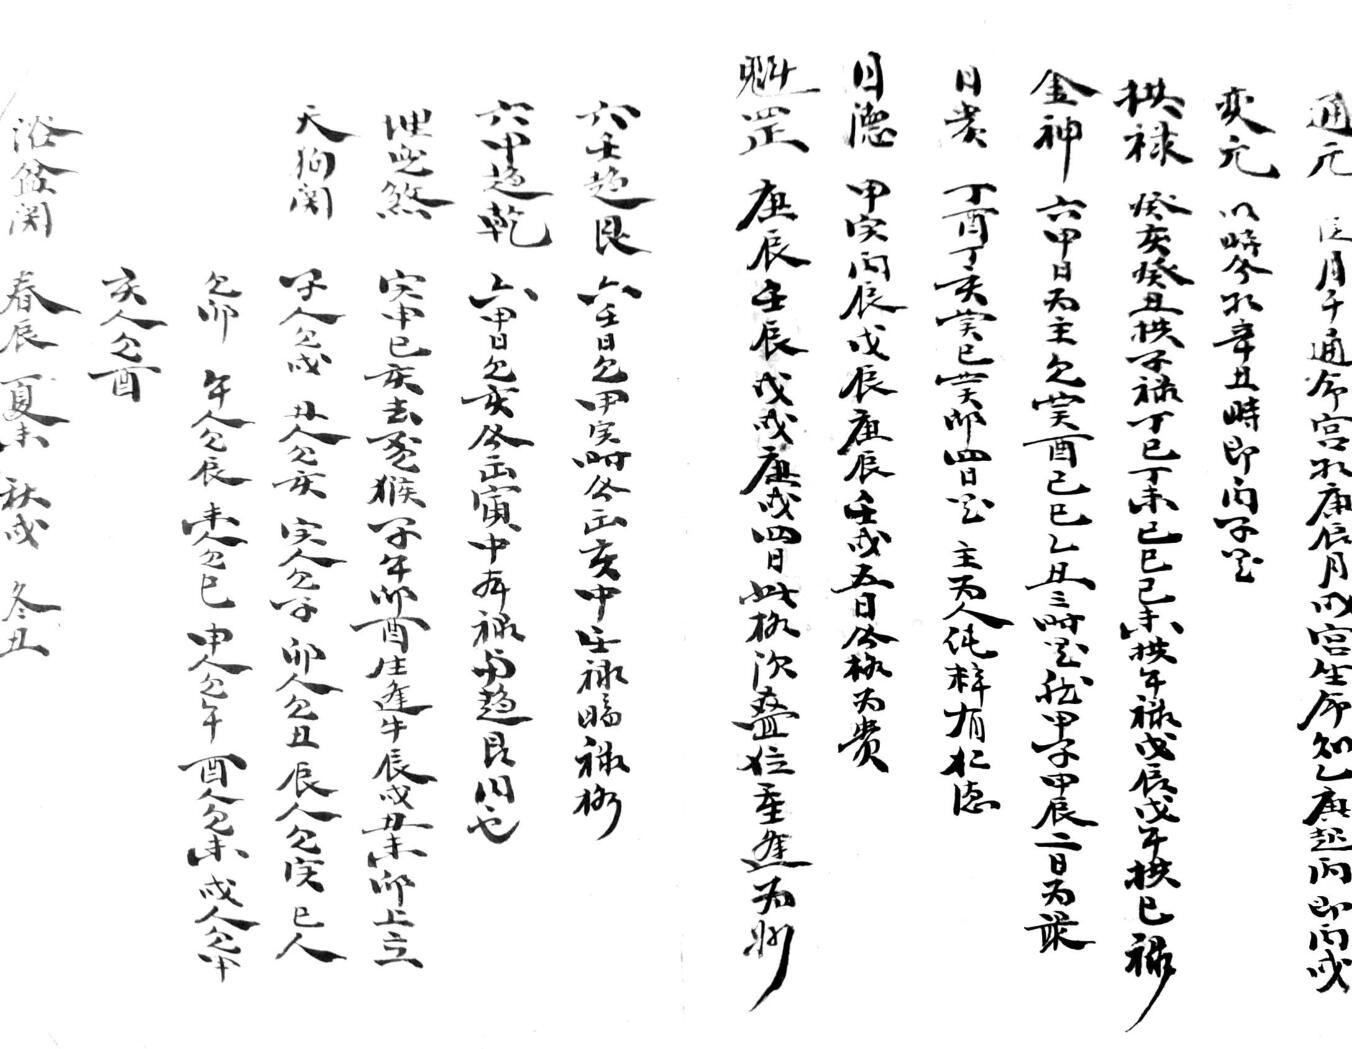 通元 從月干通命宮水庚辰月以宮生命知乙庚起丙即丙戌
奕元 以時分水辛丑時即丙子是
拱祿 癸亥癸丑拱子祿丁巳丁未己巳己未拱午祿戊辰戊午拱巳祿
金神 六甲日為主見癸酉己巳乙丑三時是然甲子甲辰二日為最
日貴 丁酉丁亥癸巳癸卯四日是 主為人純粹有仁德
日德 甲寅丙辰戊辰庚辰壬戌五日合格為貴
魁罡 庚辰壬辰戊戌庚戌四日此格須疊位重逢為妙
六壬趨艮 六壬日見甲寅時合出亥中壬祿暗祿格
六甲趨乾 六甲日見亥合出寅中有祿與趨艮同也
埋兒煞 寅申巳亥去尋猴 子午卯酉生逢牛 辰戌丑未卯上立
天狗関 子人見戌 丑人見亥 寅人見子 卯人見丑 辰人見寅 巳人
見卯 午人見辰 未人見巳 申人見午 酉人見未 戌人見申
亥人見酉
浴盆関 春辰 夏未 秋戌 冬丑